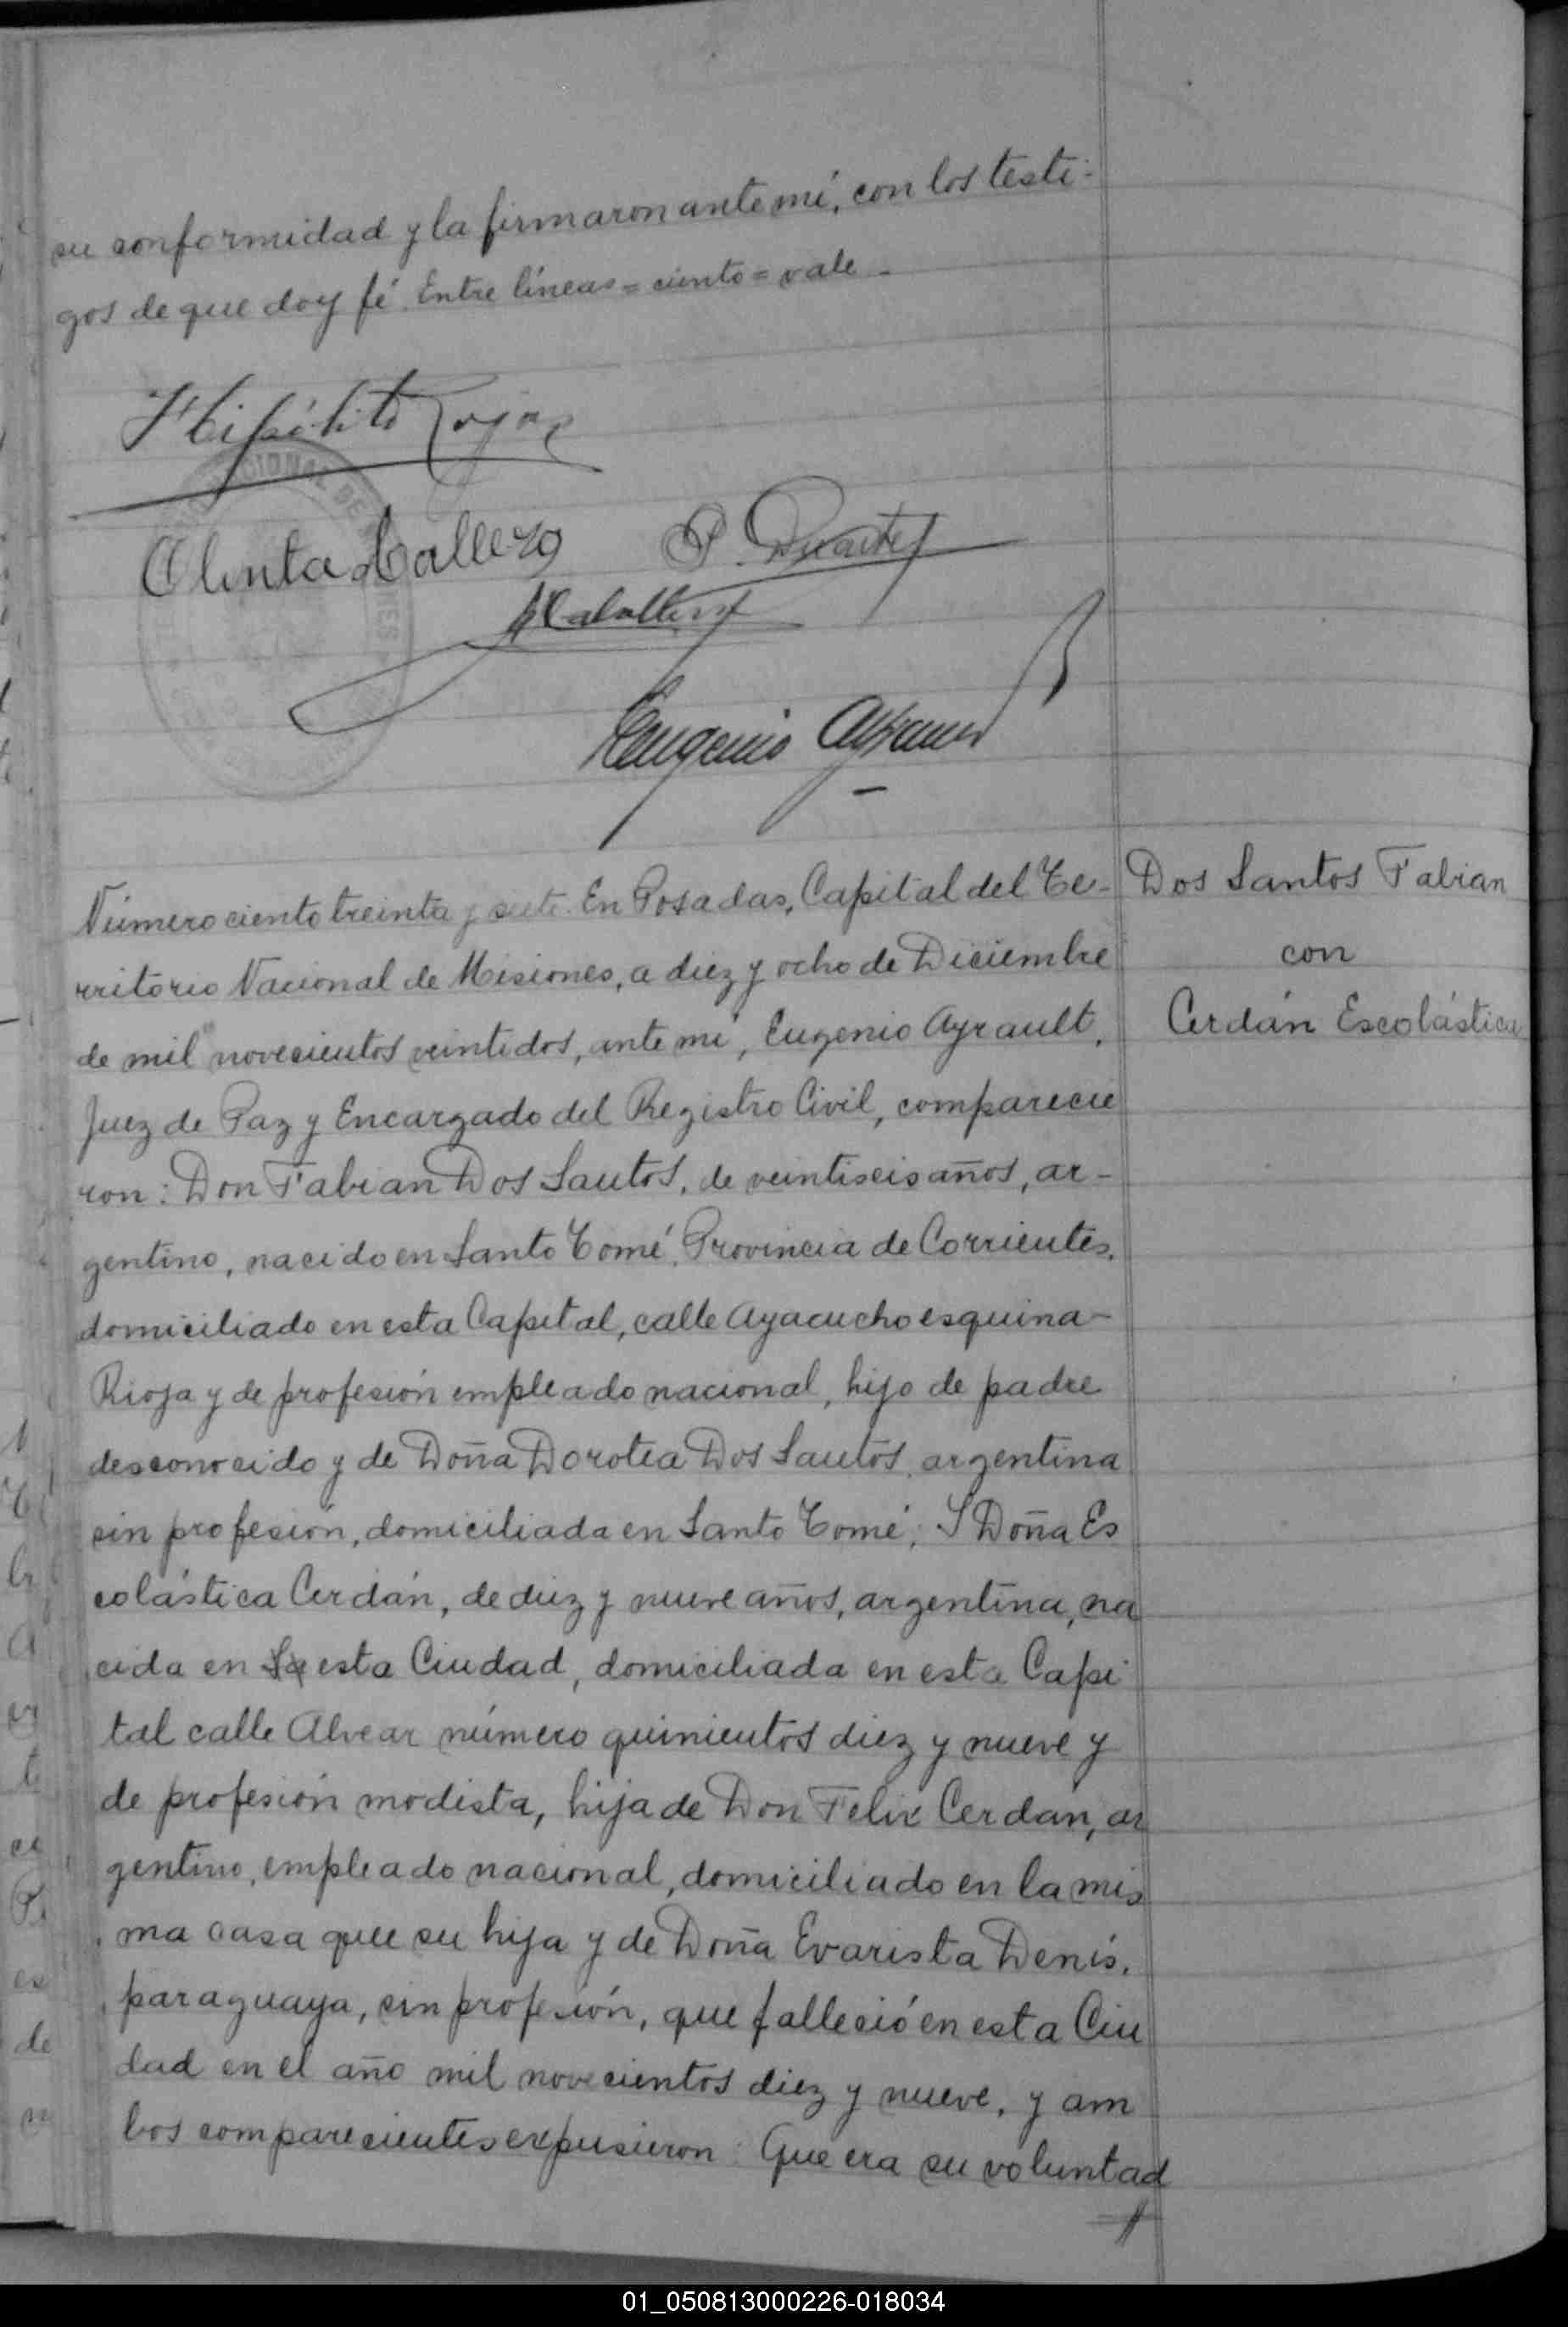 su conformidad y la firmaron ante mí, con los testi-
gos de que doy fé. Entre líneas = ciento = vale -
Hipólito Rojas
P. Duarte
Eugenio Ayrault
Número ciento treinta y siete. En Posadas, Capital del Te-
rritorio Nacional de Misiones, a diez y ocho de Diciembre
de mil novecientos veintidos, ante mí, Eugenio Ayrault,
Juez de Paz y Encargado del Registro Civil, comparecie
ron: Don Fabian Dos Santos, de veintiseis años, ar-
gentino, nacido en Santo Tomé, Provincia de Corrientes,
domiciliado en esta Capital, calle Ayacucho esquina-
Rioja y de profesión empleado nacional, hijo de padre
desconocido y de Doña Dorotea Dos Santos, argentina
sin profesión, domiciliada en Santo Tomé; Y Doña Es
colástica Cerdán, de diez y nueve años, argentina, na
cida en esta Ciudad, domiciliada en esta Capi
tal calle Alvear número quinientos diez y nueve y
de profesión modista, hija de Don Felix Cerdan, ar
gentino, empleado nacional, domiciliado en la mis
ma casa que su hija y de Doña Evarista Denis,
paraguaya, sin profesión, que falleció en esta Ciu
dad en el año mil novecientos diez y nueve, y am
bos comparecientes expusieron: Que era su voluntad
Dos Santos Fabian
con
Cerdán Escolástica
01_050813000226-018034